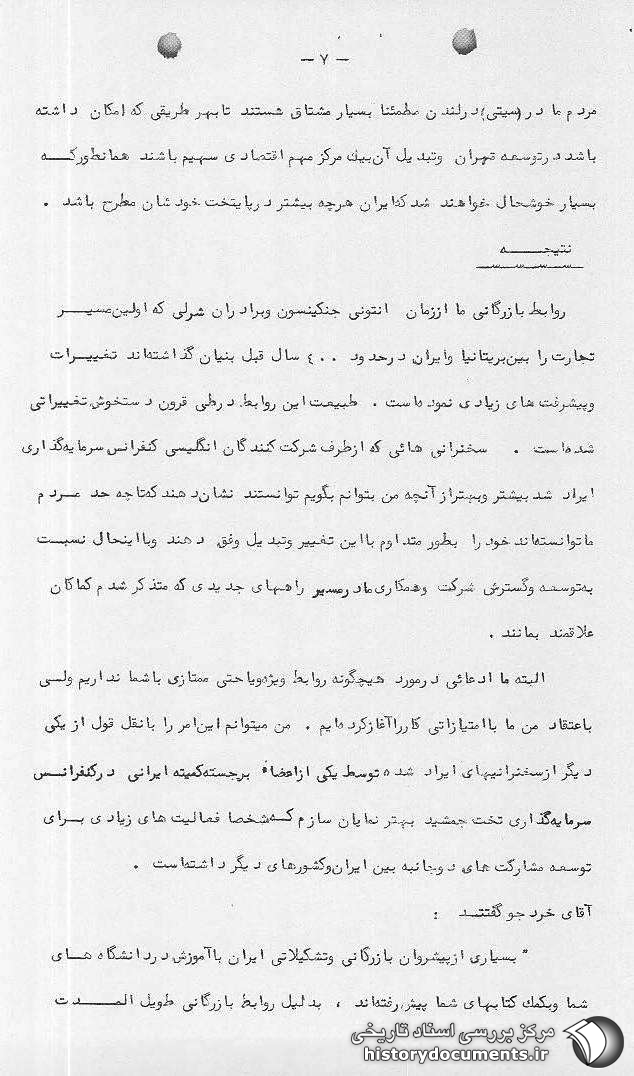 — ۷ —
مردم ما در (سیتی) در لندن مطمئنا بسیار مشتاق هستند تا بهر طریقی که امکان داشته
باشد در توسعه تهران وتبدیل آن بیك مرکز مهم اقتصادی سهیم باشند همانطورکه
بسیار خوشحال خواهند شد که ایران هرچه بیشتر در پایتخت خودشان مطرح باشد .
نتیجه
روابط بازرگانی ما از زمان انتونی جنکینسون وبرادران شرلی که اولین مسیر
تجارت را بین بریتانیا وایران در حدود ۴۰۰ سال قبل بنیان گذاشته‌اند تغییرات
وپیشرفت های زیادی نموده است . طبیعت این روابط در طی قرون دستخوش تغییراتی
شده است . سخنرانی هائی که از طرف شرکت کنندگان انگلیسی کنفرانس سرمایه‌گذاری
ایراد شد بیشتر وبهتر از آنچه من بتوانم بگویم توانستند نشان دهند که تاچه حد مردم
ما توانسته‌اند خود را بطور متداوم با این تغییر وتبدیل وفق دهند وبا اینحال نسبت
به توسعه وگسترش شرکت وهمکاری ما در مسیر راههای جدیدی که متذکر شدم کماکان
علاقمند بمانند .
البته ما ادعائی در مورد هیچگونه روابط ویژه ویا حتی ممتازی با شما نداریم ولی
باعتقاد من ما با امتیازاتی کار را آغاز کرده ایم . من میتوانم این امر را با نقل قول از یکی
دیگر از سخنرانیهای ایراد شده توسط یکی از اعضاء برجسته کمیته ایرانی در کنفرانس
سرمایه‌گذاری تخت جمشید بهتر نمایان سازم که شخصا فعالیت های زیادی برای
توسعه مشارکت های دوجانبه بین ایران وکشورهای دیگر داشته است .
آقای خرد جو گفتند :
" بسیاری از پیشروان بازرگانی وتشکیلاتی ایران با آموزش در دانشگاه های
شما وبکمك کتابهای شما پیش رفته‌اند ، بدلیل روابط بازرگانی طویل المدت
مرکز بررسی اسناد تاریخی
historydocuments.ir